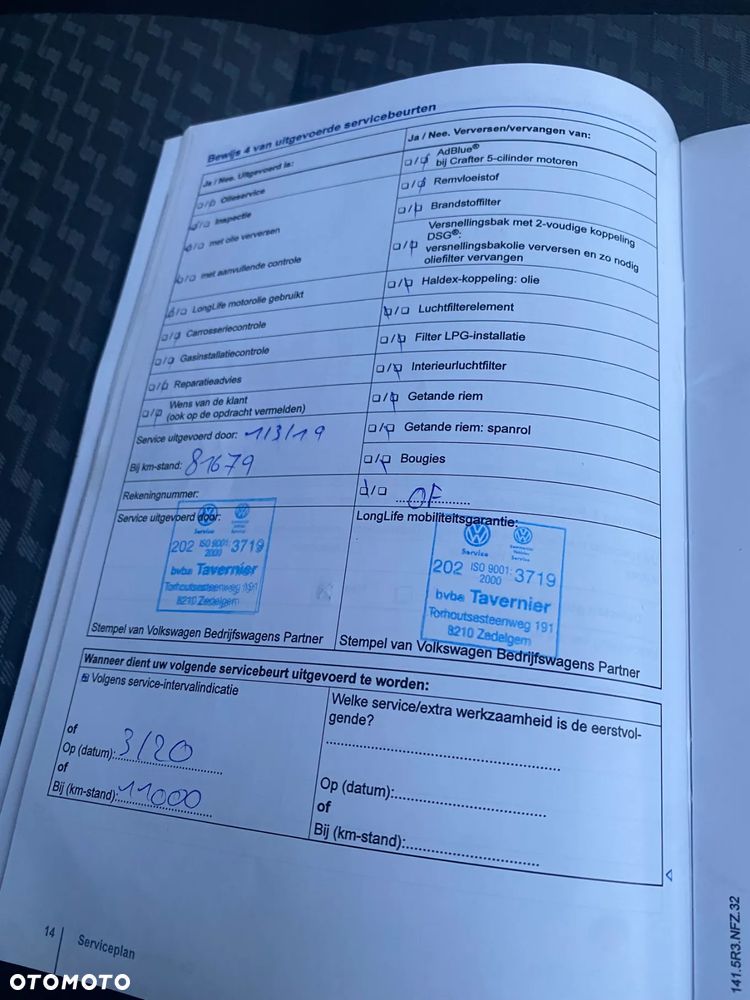 Bewijs 4 van uitgevoerde servicebeurten
Ja / Nee. Uitgevoerd is:
Olieservice
Inspectie
met olie verversen
met aanvullende controle
LongLife motorolie gebruikt
Carrosseriecontrole
Gasinstallatiecontrole
Reparatieadvies
Wens van de klant
(ook op de opdracht vermelden)
Service uitgevoerd door: 1/3/19
Bij km-stand: 81679
Rekeningnummer:
Service uitgevoerd door:
Service
202 ISO 9001: 3719
2000
bvba Tavernier
Torhoutsesteenweg 191
8210 Zedelgem
Stempel van Volkswagen Bedrijfswagens Partner
Ja / Nee. Verversen/vervangen van:
AdBlue®
bij Crafter 5-cilinder motoren
Remvloeistof
Brandstoffilter
Versnellingsbak met 2-voudige koppeling
DSG®:
versnellingsbakolie verversen en zo nodig
oliefilter vervangen
Haldex-koppeling: olie
Luchtfilterelement
Filter LPG-installatie
Interieurluchtfilter
Getande riem
Getande riem: spanrol
Bougies
OF
LongLife mobiliteitsgarantie:
Service
202 ISO 9001: 3719
2000
bvba Tavernier
Torhoutsesteenweg 191
8210 Zedelgem
Stempel van Volkswagen Bedrijfswagens Partner
Wanneer dient uw volgende servicebeurt uitgevoerd te worden:
Volgens service-intervalindicatie
of
Op (datum): 3/20
of
Bij (km-stand): 11000
Welke service/extra werkzaamheid is de eerstvol-
gende?
Op (datum):
of
Bij (km-stand):
14 Serviceplan
141.5R3.NFZ.32
OTOMOTO